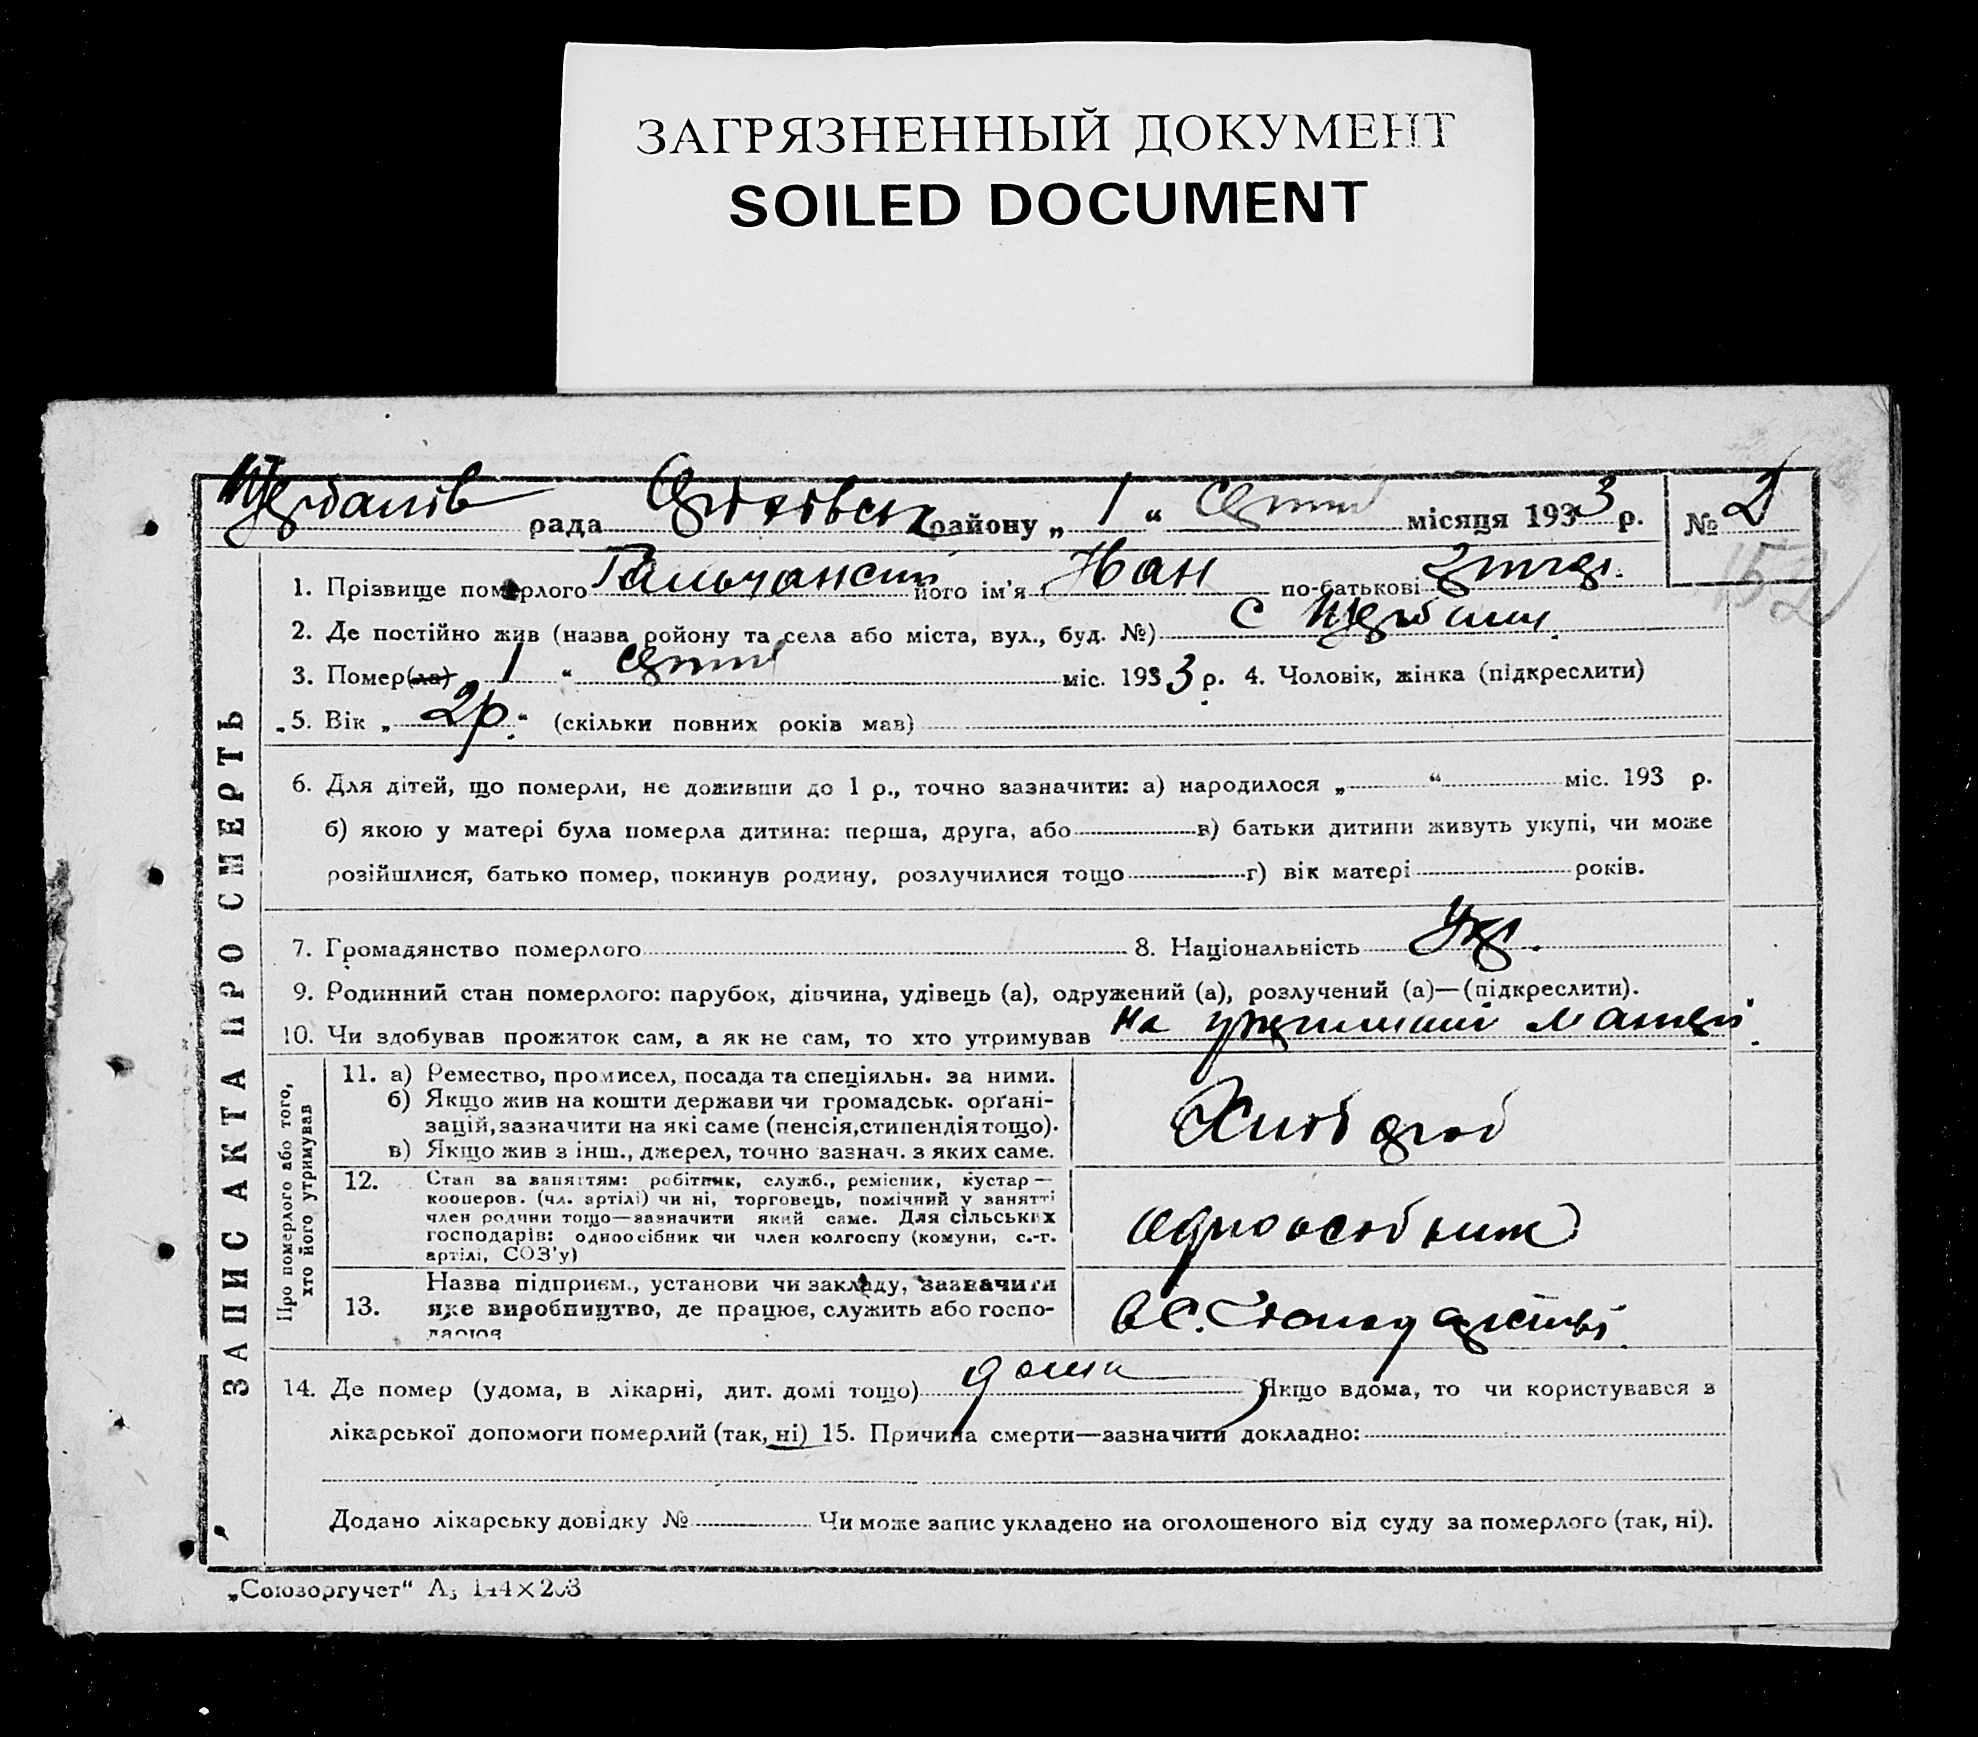 ЗАГРЯЗНЕННЫЙ ДОКУМЕНТ
SOILED DOCUMENT
рада району „ 1 “ місяця 1933 р. № 2
152
1. Прізвище померлого Гальчанский його ім'я Йван по-батькові
2. Де постійно жив (назва ройону та села або міста, вул., буд. №) с
3. Помер(ла) 1 “ міс. 1933 р. 4. Чоловік, жінка (підкреслити)
5. Вік „ 2р. “ (скільки повних років мав)
6. Для дітей, що померли, не доживши до 1 р., точно зазначити: а) народилося „ “ міс. 193 р.
б) якою у матері була померла дитина: перша, друга, або в) батьки дитини живуть укупі, чи може
розійшлися, батько помер, покинув родину, розлучилися тощо г) вік матері років.
7. Громадянство померлого 8. Національність Укр.
9. Родинний стан померлого: парубок, дівчина, удівець (а), одружений (а), розлучений (а)—(підкреслити).
10. Чи здобував прожиток сам, а як не сам, то хто утримував на
11. а) Ремество, промисел, посада та спеціяльн. за ними.
б) Якщо жив на кошти держави чи громадськ. орґані-
зацій, зазначити на які саме (пенсія, стипендія тощо).
в) Якщо жив з інш., джерел, точно зазнач. з яких саме.
Хлібороб
12. Стан за заняттям: робітник, служб., ремісник, кустар—
кооперов. (чл. артілі) чи ні, торговець, помічний у занятті
член родини тощо—зазначити який саме. Для сільських
господарів: одноосібник чи член колгоспу (комуни, с.-г.
артілі, СОЗ'у)
одноосібник
13. Назва підприєм., установи чи закладу, зазначити
яке виробництво, де працює, служить або госпо-
дарює
в С. Господарстві
14. Де помер (удома, в лікарні, дит. домі тощо) дома Якщо вдома, то чи користувався з
лікарської допомоги померлий (так, ні) 15. Причина смерти—зазначити докладно:
Додано лікарську довідку № Чи може запис укладено на оголошеного від суду за померлого (так, ні).
ЗАПИС АКТА ПРО СМЕРТЬ
Про померлого або того,
хто його утримував
„Союзоргучет“ А5 144×203